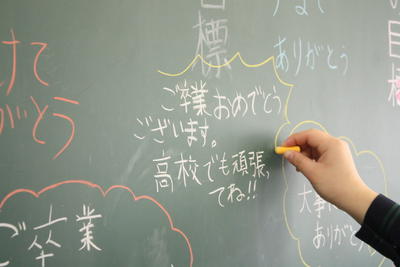 目標
ありがとう
目標
ご卒業おめでとう
ございます。
高校でも頑張っ
てね!!
ご卒業
ありがとう